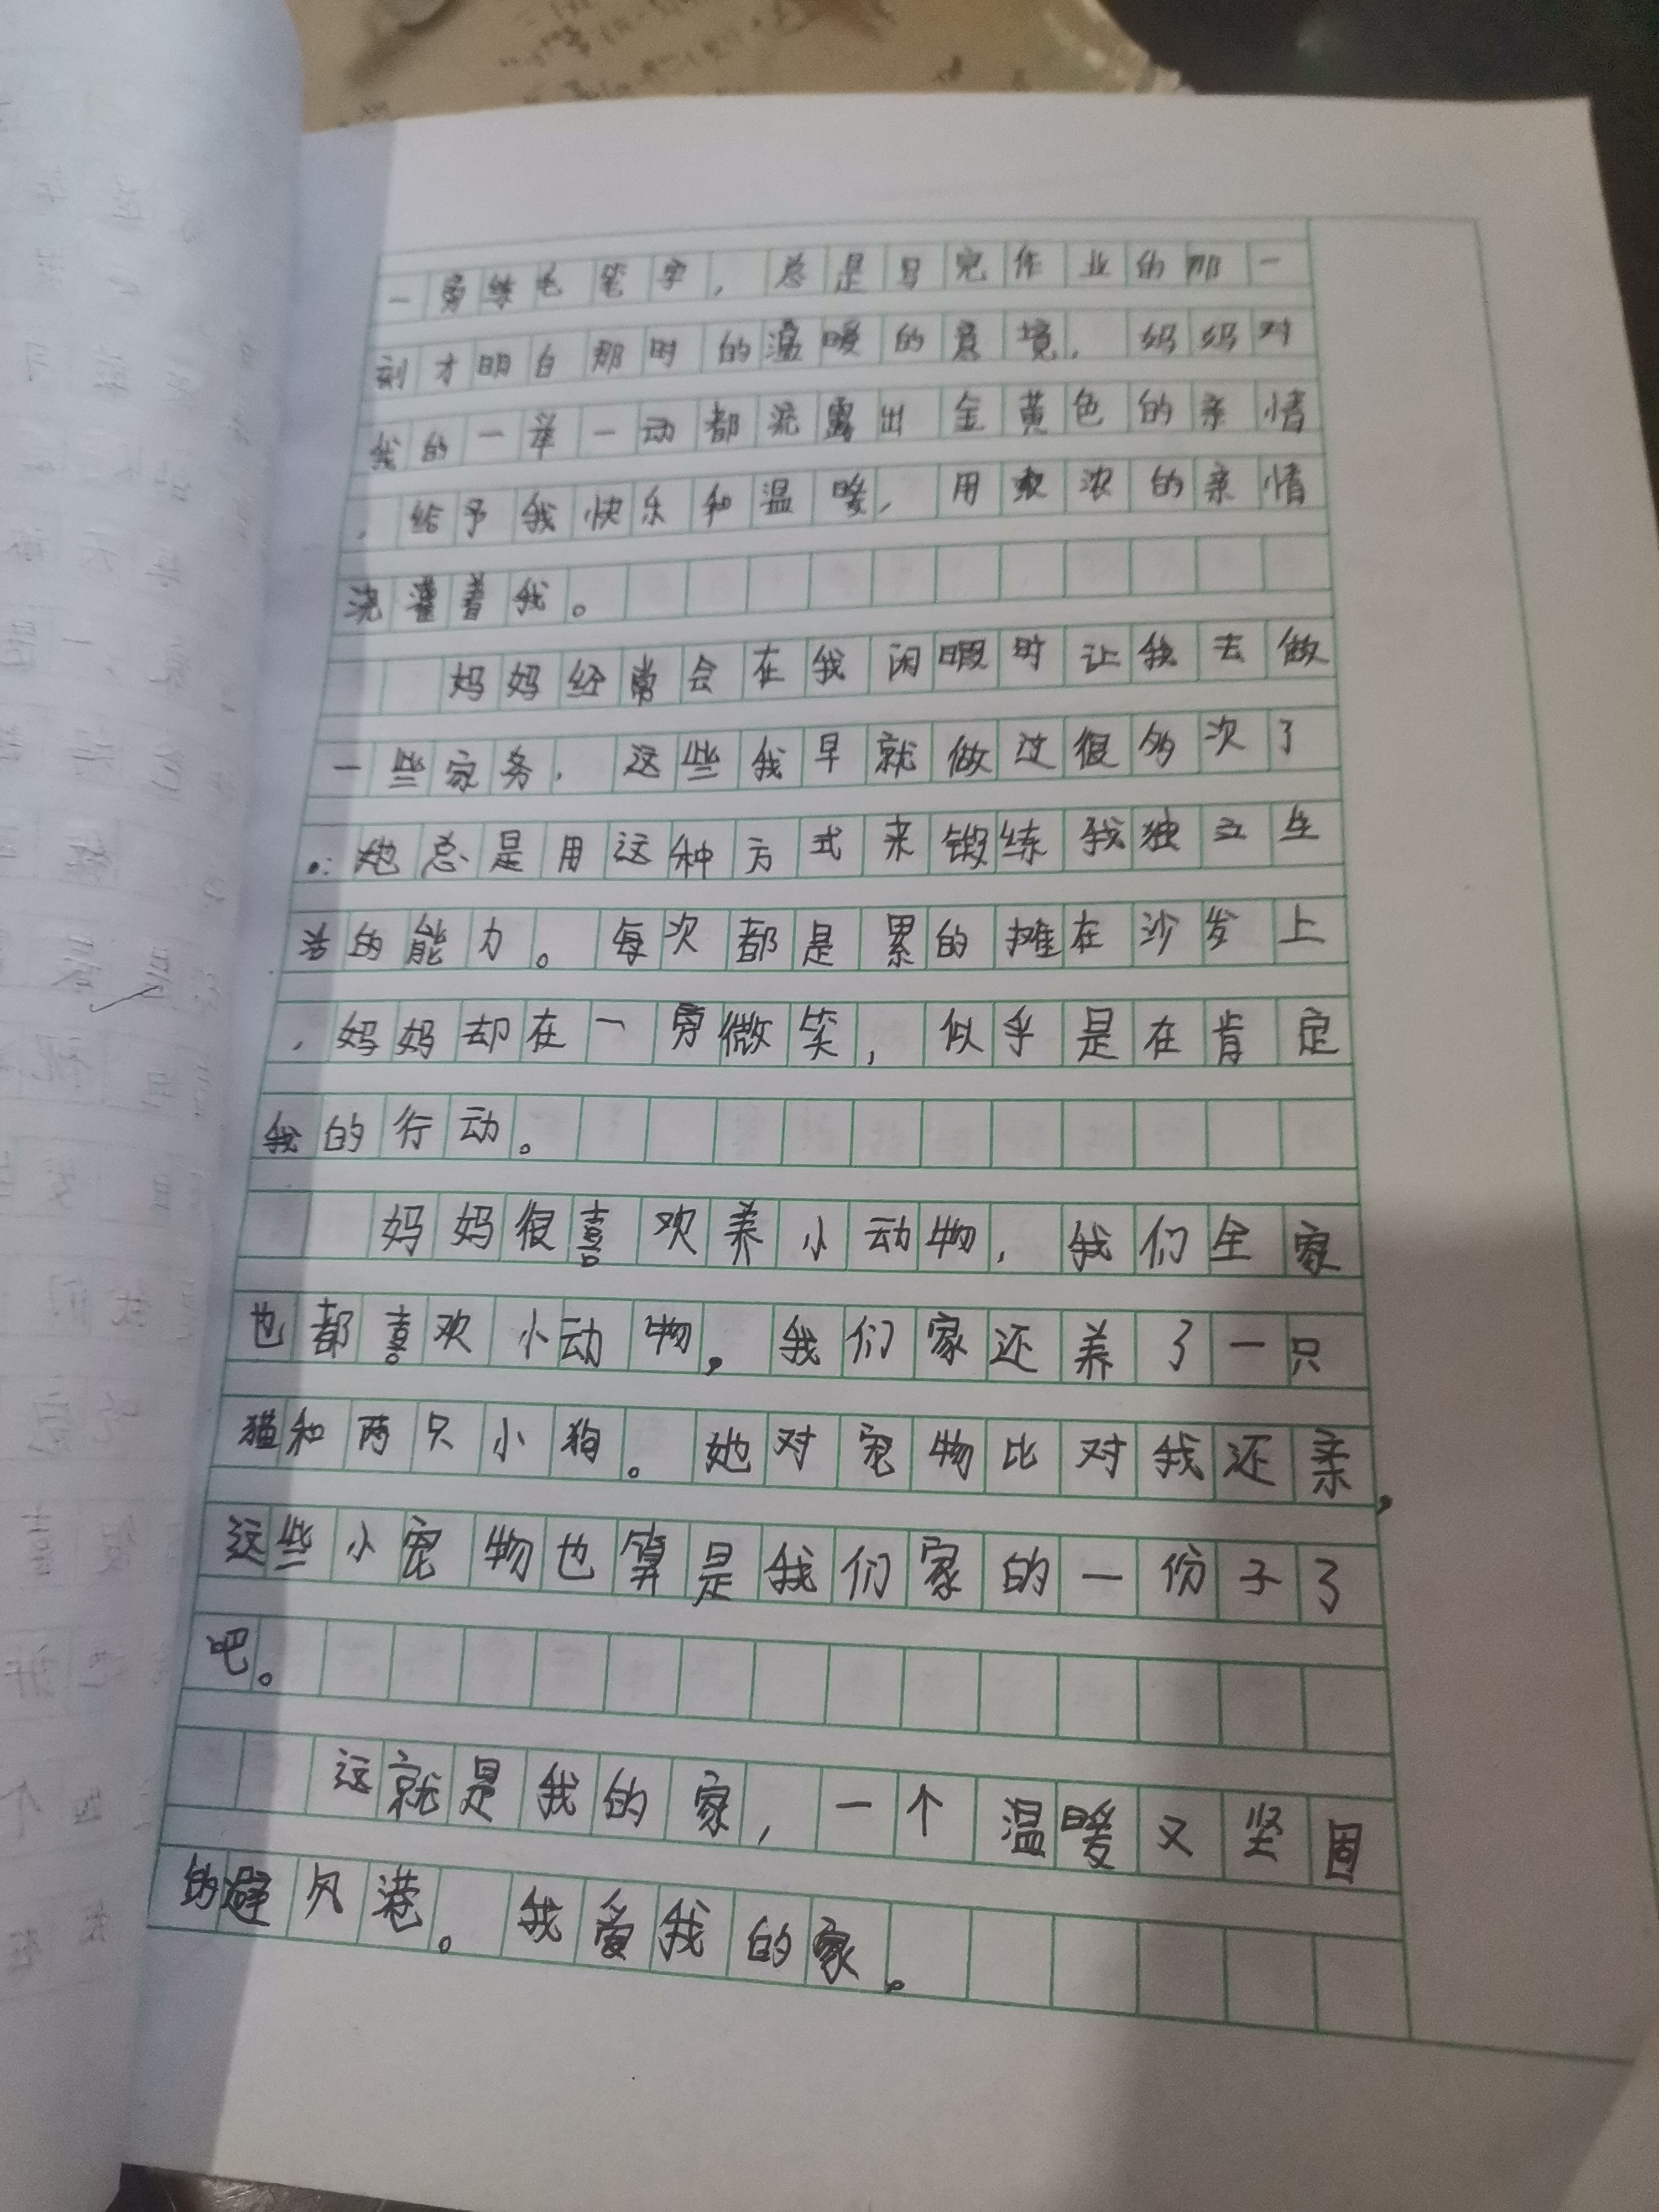 一旁练毛笔字，总是写完作业的那一
刻才明白那时的温暖的意境，妈妈对
我的一举一动都流露出金黄色的亲情
，给予我快乐和温暖，用浓的亲情
浇灌着我。
妈妈经常会在我闲暇时让我去做
一些家务，这些我早就做过很多次了
．：她总是用这种方式来锻练我独立生
活的能力。每次都是累的摊在沙发上
，妈妈却在一旁微笑，似乎是在肯定
我的行动。
妈妈很喜欢养小动物，我们全家
也都喜欢小动物，我们家还养了一只
猫和两只小狗。她对宠物比对我还亲，
这些小宠物也算是我们家的一份子了
吧。
这就是我的家，一个温暖又坚固
的避风港。我爱我的家。